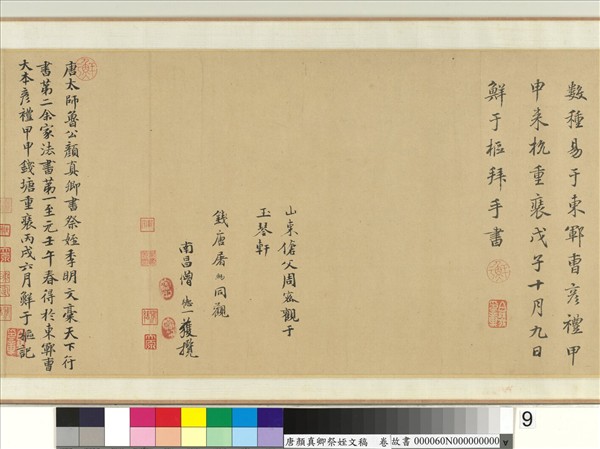 数種易于東鄆曹彦禮甲
申来杭重裝戊子十月九日
鮮于樞拜手書
山東傖父周密觀于
玉琴軒
錢唐屠 同觀
南昌僧 一獲攬
唐太師魯公顏真卿書祭姪季明文藁天下行
書第二余家法書第一至元壬午春得於東鄆曹
大本彦禮甲申錢塘重裝丙戌六月鮮于樞記
9
唐顏真卿祭姪文稿 卷 故書 000060N000000000